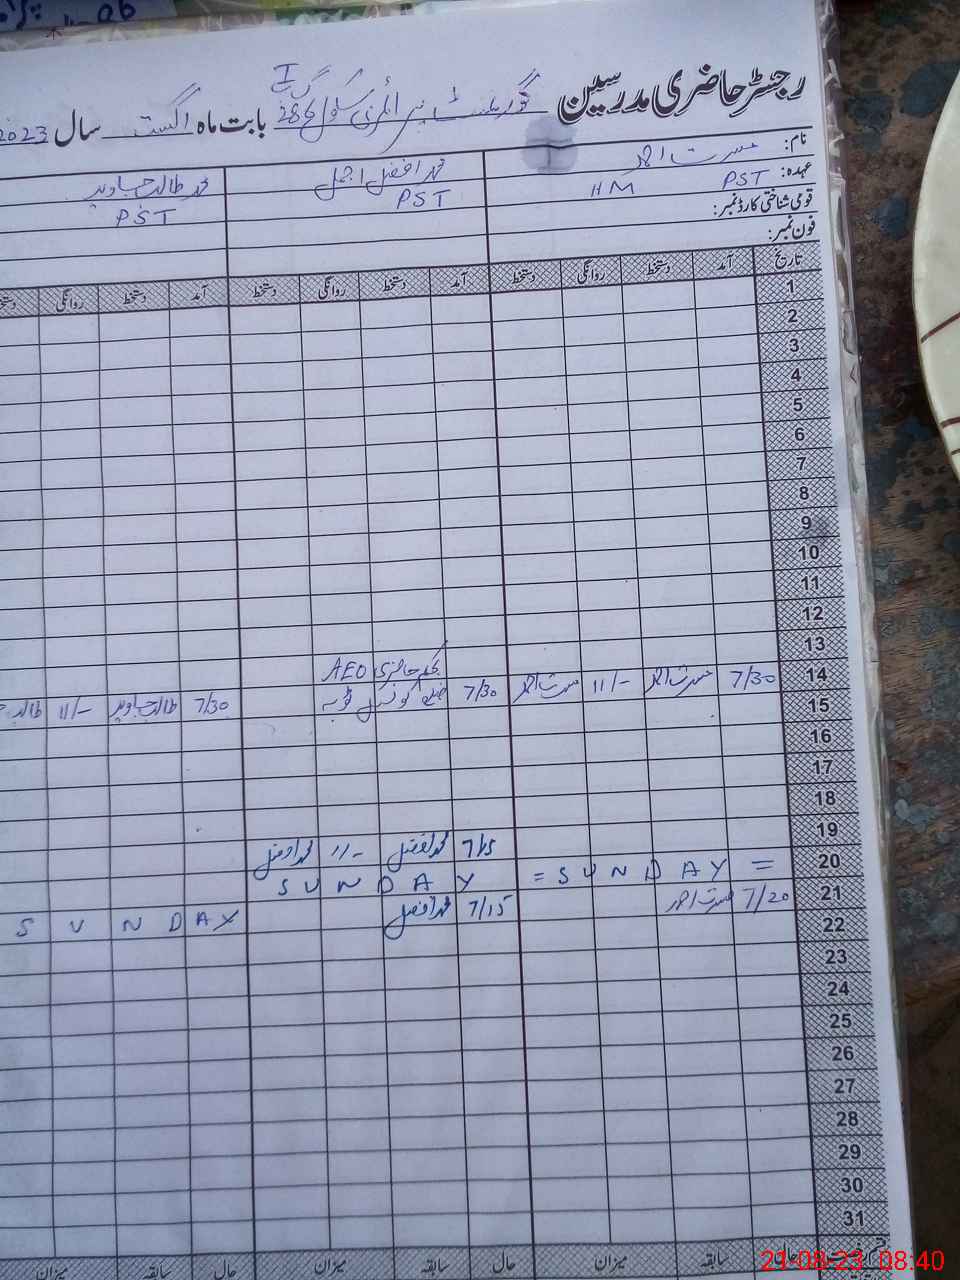 رجسٹر حاضری مدرسین گورنمنٹ پرائمری سکول 286 گ ب I بابت ماہ اگست سال 2023
نام: مسرت احمد محمد افضل اجمل محمد طالب جاوید
عہدہ: PST HM PST PST
قومی شناختی کارڈ نمبر:
فون نمبر:
تاریخ آمد دستخط روانگی دستخط آمد دستخط روانگی دستخط آمد دستخط روانگی دستخط
1
2
3
4
5
6
7
8
9
10
11
12
13
14 7/30 مسرت احمد 11/- مسرت احمد AEO
15 7/30 7/30 طالب جاوید 11/- طالب
16
17
18
19
20 = SUNDAY = 7/15 محمد افضل 11/- محمد افضل
21 7/20 مسرت احمد SUNDAY
22 7/15 محمد افضل SUNDAY
23
24
25
26
27
28
29
30
31
حال سابقہ میزان حال سابقہ میزان حال سابقہ میزان
21-08-23 08:40